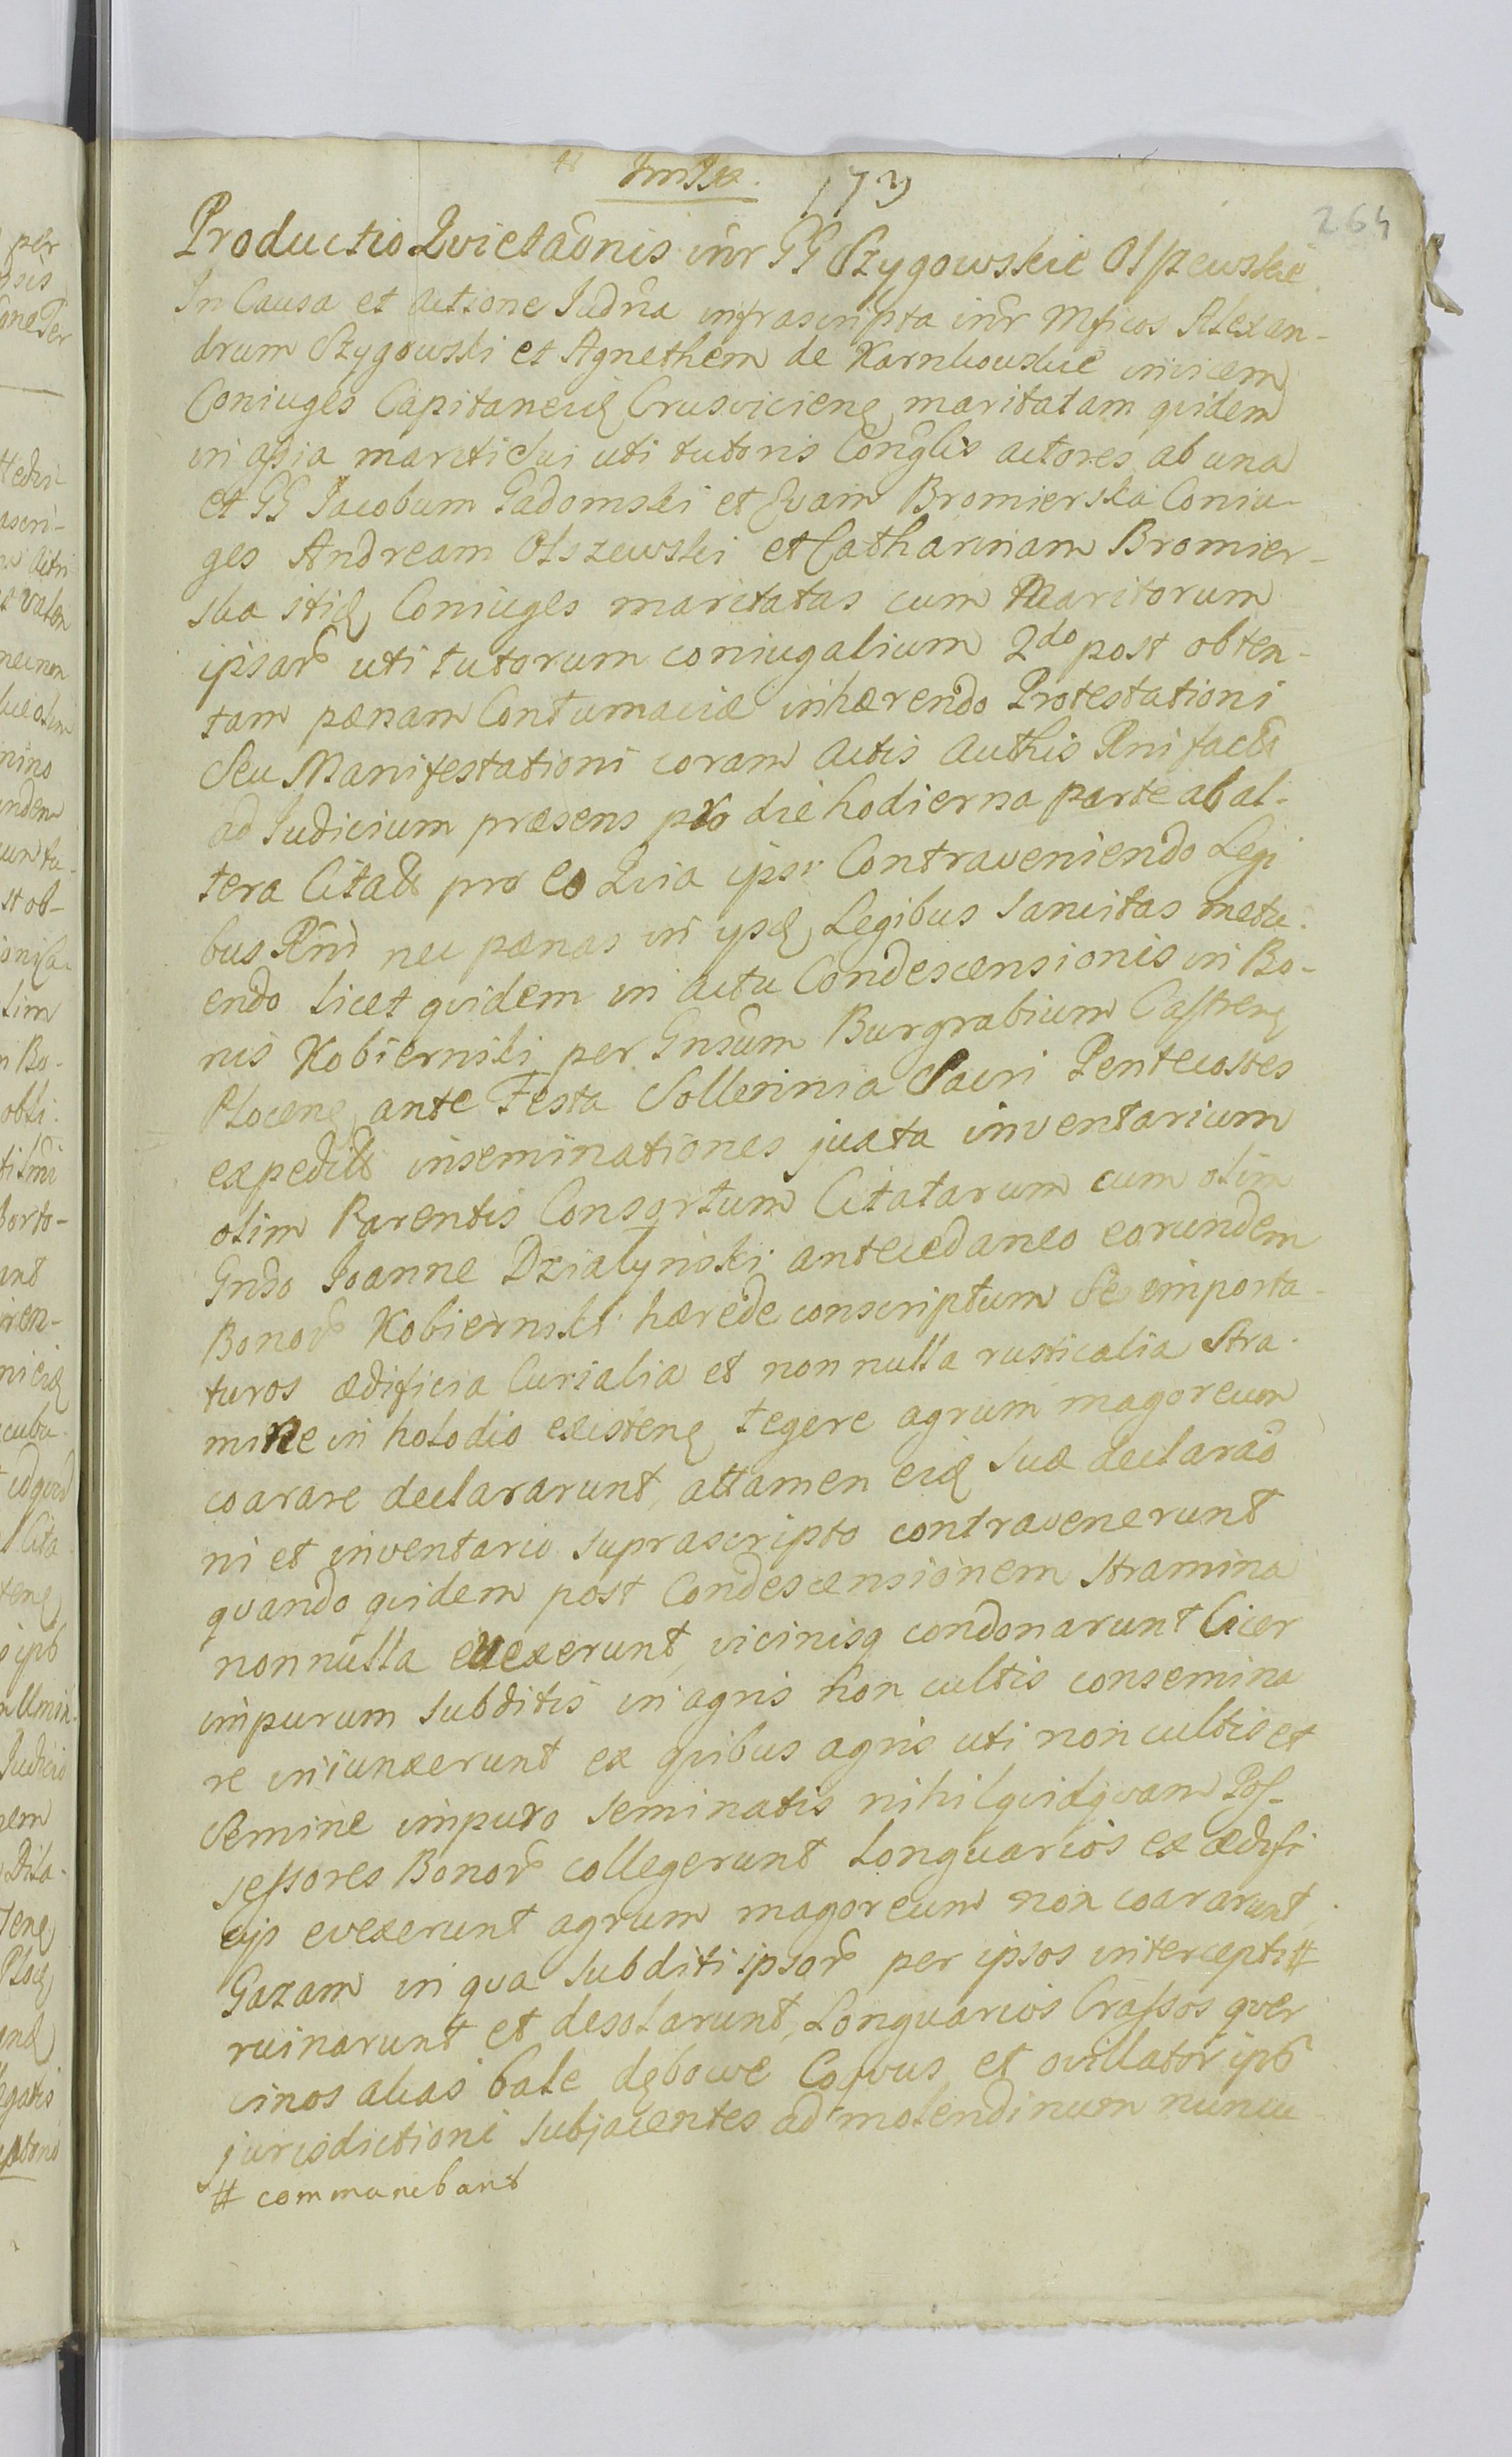 173
264
Productio Qvietaõnis inr̃ GG Szygowskie Olszewskie
In Causa et actione Iudr̃ia infrascripta inr̃ Mficos Alexan-
drum Szygowski et Agnethem de Karnkouskie invicem
Coniuges Capitaneos Crusvicien maritatam qvidem
in assia mariti sui uti tutoris Cong̃lis actores ab una
et GG Jacobum Gadomski et Evam Bromierska Coniu-
ges Andream Olszewski et Catharinam Bromier-
ska itid Coniuges maritatas cum Maritorum
ipsar̃ uti tutorum coniugalium 2do post obten-
tam pænam Contumaciæ inhærendo Protestationi
Seu Manifestationi coram Actis Authis Pñi factæ
ad Iudicium præsens pro die hodierna parte ab al-
tera Citatos pro eo Qvia ipsi Contraveniendo Legi
bus Rñi nec pænas in ysd Legibus sancitas metu-
endo licet qvidem in actu Condescensionis in Bo-
nis Kobierniki per Gnsum Burgrabium Castren
Plocen ante Festa Sollennia Sacri Pentecostes
expeditæ inseminationes juxta inventarium
olim Parentis Consortum Citatarum cum olim
Gnso Ioanne Dzialynski antecedaneo eorundem
Bonor̃ Kobierniki hærede conscriptum Se importa-
turos ædificia Curialia et non nulla rusticalia stra-
mine in holodio existen tegere agrum magoreum
coarare declararunt, attamen eid suæ declaraõ
ni et inventario suprascripto contravenerunt
qvando qvidem post Condescensionem stramina
nonnulla evexerunt, vicinisq condonarunt Cicer
impurum subditis in agris non cultis consemina
re iniunxerunt ex qvibus agris uti non cultis et
semine impuro seminatis nihil qvidqvam Pos-
sessores Bonor̃ collegerunt Longuarios ex ædifi
cijs evexerunt agrum magoreum non coararunt,
Gazam in qva subditi ipsor̃ per ipsos intercepti #
ruinarunt et desolarunt, Longuarios Crassos qver
cinos alias bale dębowe Coqvus et ovillator ipś
jurisdictioni subjacentes ad molendinum nuncu
# communibant